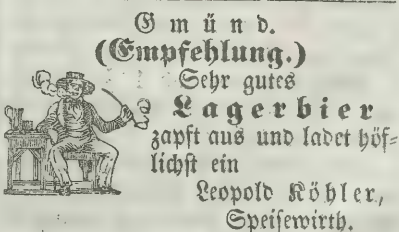 Gmünd.
(Empfehlung.)
Sehr gutes
Lagerbier
zapft aus und ladet höf-
lichst ein
Leopold Köhler,
Speisewirth.